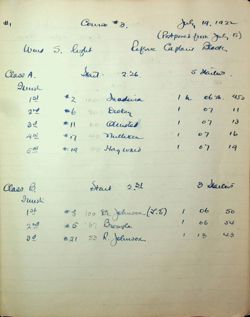 #1 Course #3. July 19, 1932
(Postponed from July 15)
Wind S. light Referee Captain
Class A. Start 2.26 5 Starters
Finish
1st #2 100 1 h 06 m 45 s
2nd #6 1 07 11
3rd #11 Olmsted 1 07 13
4th #17 1 07 16
5th #19 Hayward 1 07 19
Class B. Start 2.31 3 Starters
Finish
1st #3 100 B. Johnson 1 06 50
2nd #5 1 06 54
3rd #21 R. Johnson 1 13 43